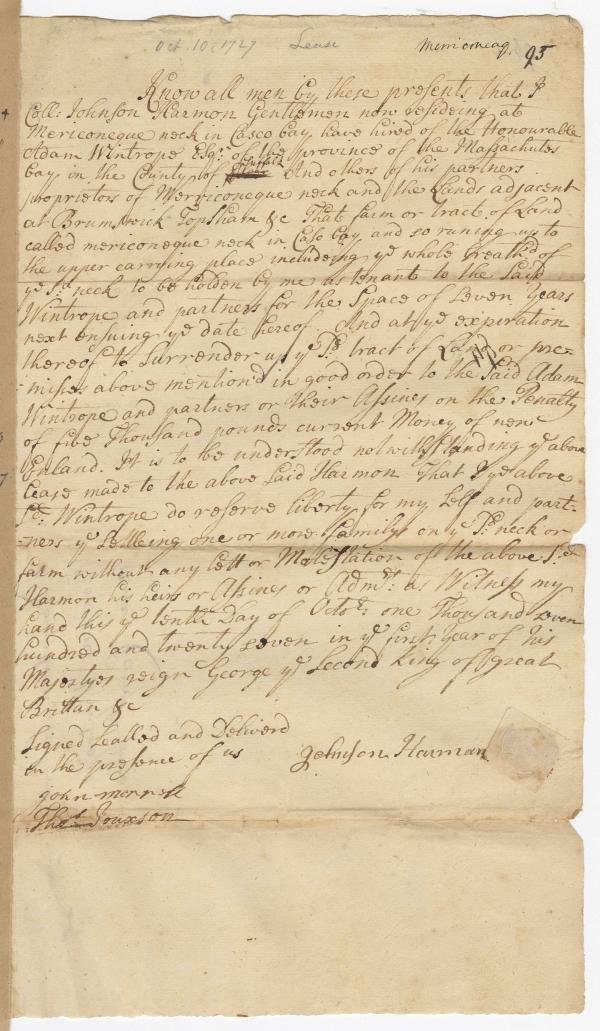 Oct. 10. 1727 Lease Merriconeag. 95
Know all men by these presents that I
Coll: Johnson Harmon Gentlemen now resideing at
Mericoneque neck in Casco bay have hired of the Honourable
Adam Wintrope Esqr. of the province of the Massachusets
bay in the County of Suffolk And others of his partners
proprietors of Merriconeque neck and the Lands adjacent
at Brunswick Topsham &c That farm or tract of Land
called mericoneque neck in Casco bay and so runing up to
the upper carrying place includeing ye whole breath of
ye sd. neck to be holden by me as tenant to the Said
Wintrope and partners for the Space of seven Years
next ensuing ye date hereof. And at ye expiration
thereof to Surrender up ye sd. tract of Land or pre-
mises above mention'd in good order to the Said Adam
Wintrope and partners or their Assines on the Penalty
of five Thousand pounds current Money of new
England. It is to be understood notwithstanding ye above
lease made to the above Said Harmon That I ye above
sd. Wintrope do reserve liberty for my Self and part-
-ners ye Settleing one or more familys on ye sd. neck or
farm without any lett or Molestation of the above sd.
Harmon his heirs or Assines or Admrs. as Witness my
hand this ye tenth Day of Octor. one Thousand seven
hundred and twenty seven in ye first year of his
Majestyes reign George ye Second King of great
Brittan &c
Signed Sealled and Deliverd
in the presence of us Johnson Harman
John
Thos.